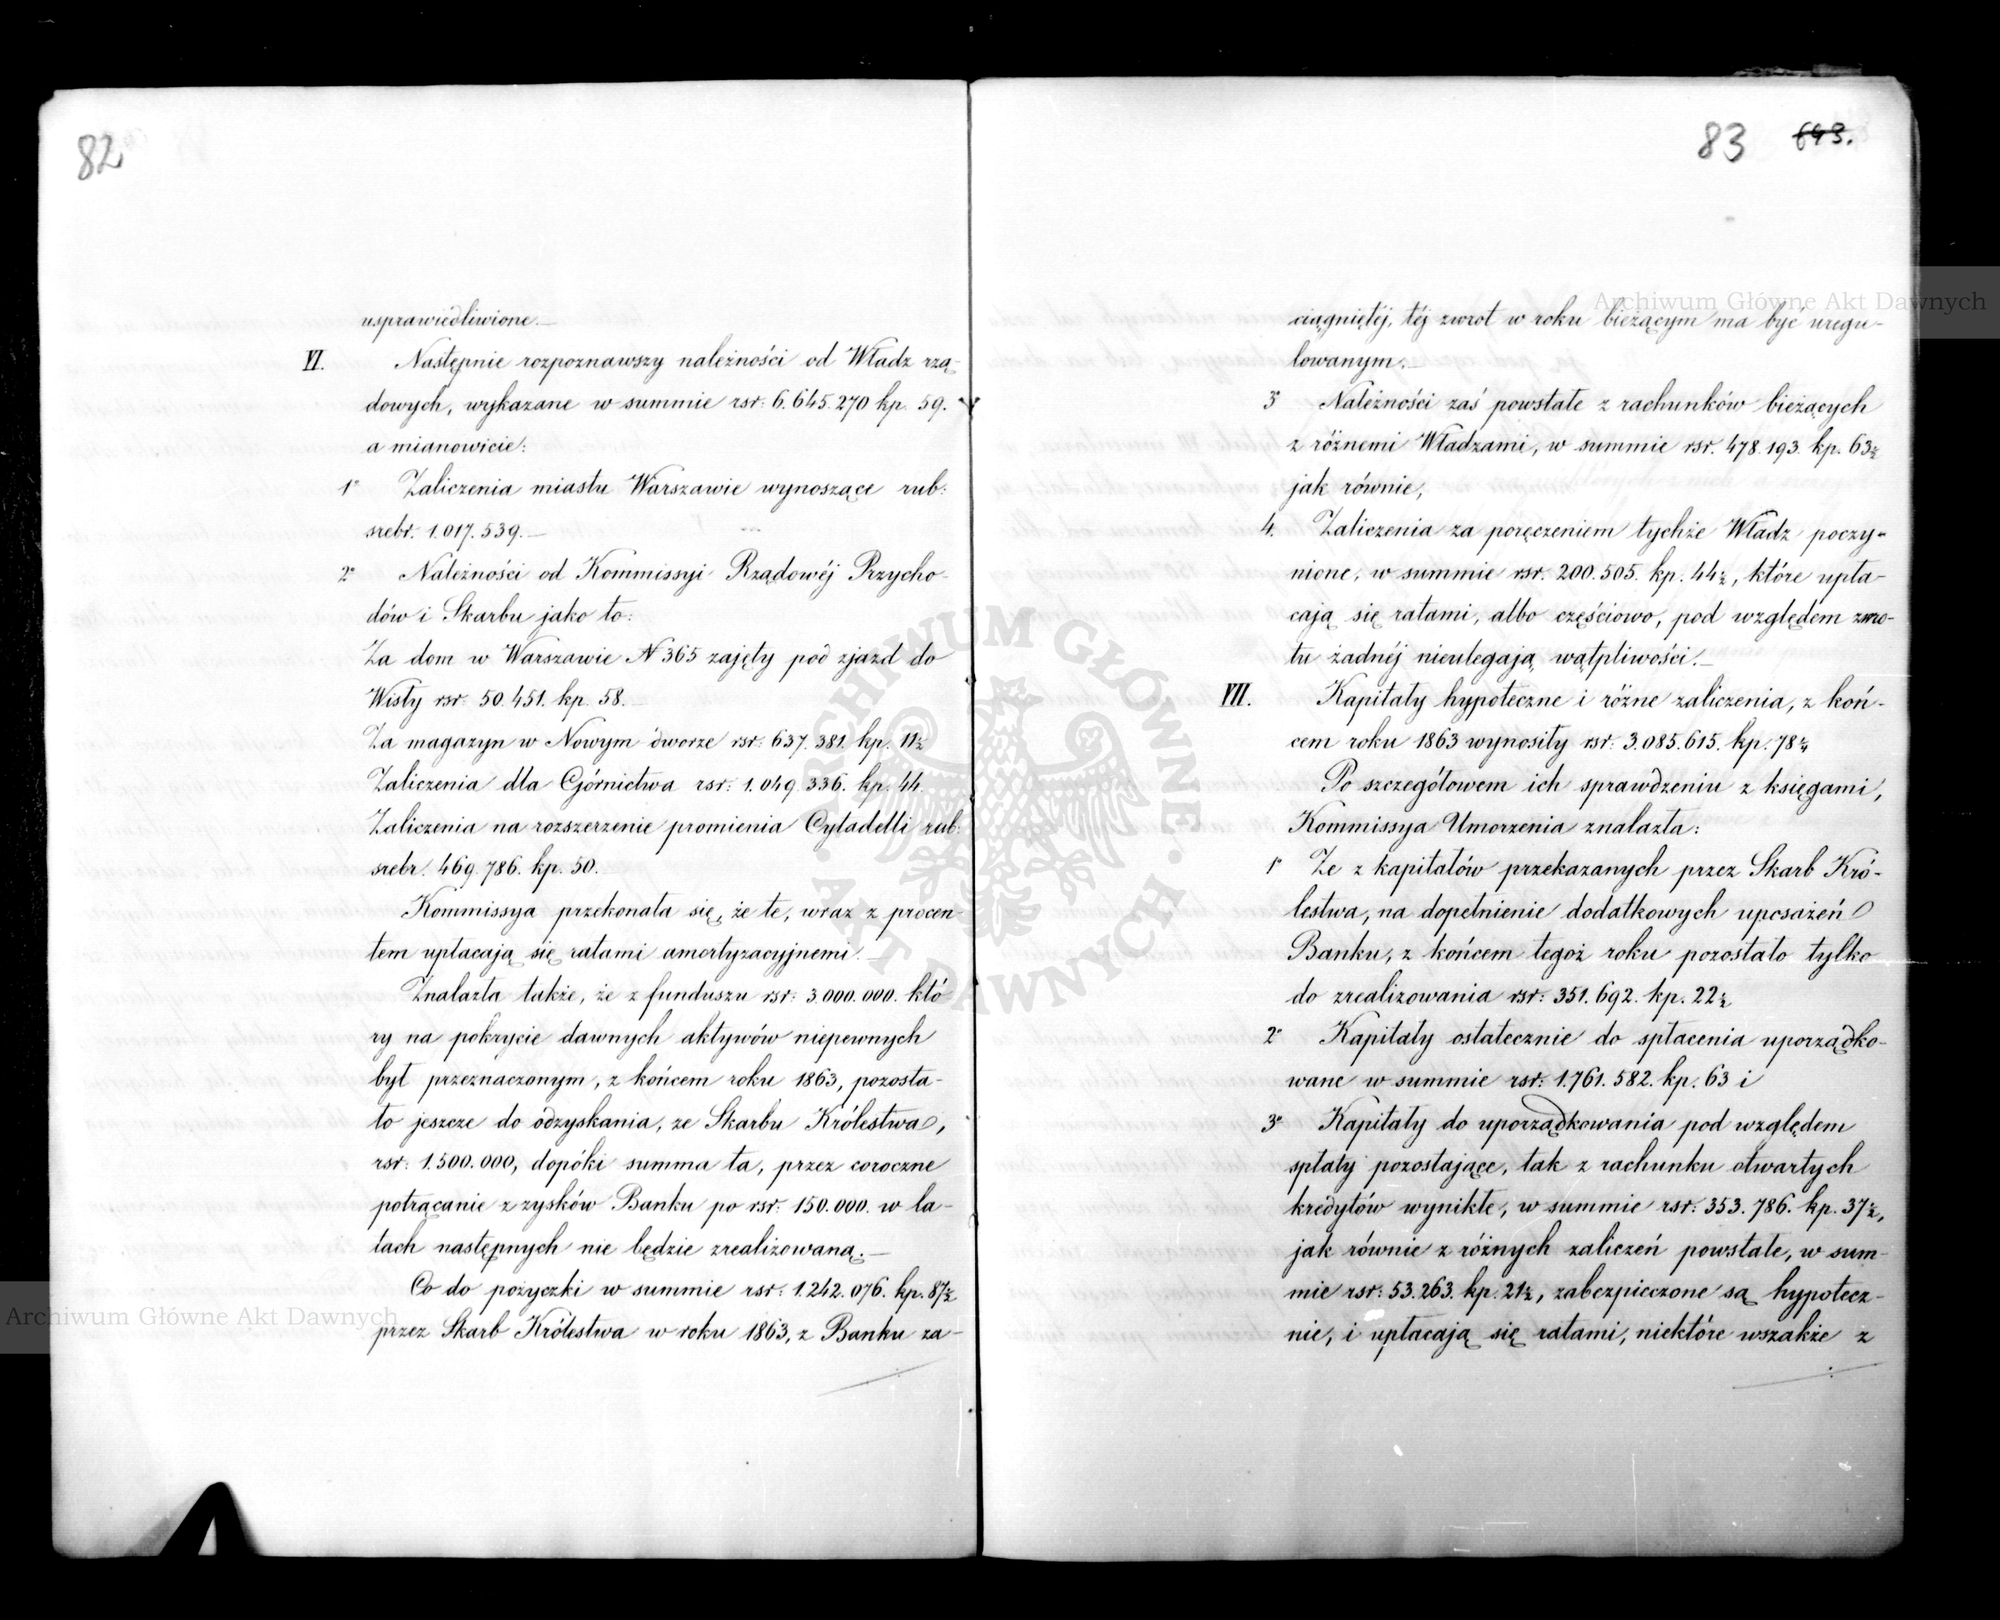 82
usprawiedliwione.—
VI. Następnie rozpoznawszy należności od Władz rzą-
dowych, wykazane w summie rsr: 6.645.270 kp. 59.
a mianowicie:
1° Zaliczenia miastu Warszawie wynoszące rub:
srebr. 1.017.539.—
2° Należności od Kommissyi Rządowéj Przycho-
dów i Skarbu jako to:
Za dom w Warszawie N 365 zajęty pod zjazd do
Wisły rsr: 50.451. kp. 58.—
Za magazyn w Nowym dworze rsr: 637.381. kp. 11½
Zaliczenia dla Górnictwa rsr: 1.049.336. kp. 44.
Zaliczenia na rozszerzenie promienia Cytadelli rub:
srebr. 469.786. kp. 50.—
Kommissya przekonała się, że te, wraz z procen-
tem upłacają się ratami amortyzacyjnemi.—
Znalazła także, że z funduszu rsr: 3.000.000. któ
ry na pokrycie dawnych aktywów niepewnych
był przeznaczonym, z końcem roku 1863, pozosta-
ło jeszcze do odzyskania, ze Skarbu Królestwa,
rsr: 1.500.000, dopóki summa ta, przez coroczne
potrącanie z zysków Banku po rsr: 150.000. w la-
tach następnych nie będzie zrealizowaną.—
Co do pożyczki w summie rsr: 1.242.076. kp. 87½
przez Skarb Królestwa w roku 1863, z Banku za-
83 643.
ciągniętéj, téj zwrot w roku bieżącym ma być uregu-
lowanym.—
3° Należności zaś powstałe z rachunków bieżących
z różnemi Władzami, w summie rsr. 478.193. kp. 63½
jak równie,
4. Zaliczenia za poręczeniem tychże Władz poczy-
nione, w summie rsr. 200.505. kp. 44½, które upła-
cają się ratami, albo częściowo, pod względem zwro-
tu żadnéj nieulegają wątpliwości.—
VII. Kapitały hypoteczne i różne zaliczenia, z koń-
cem roku 1863 wynosiły rsr: 3.085.615. kp. 78½
Po szczegółowem ich sprawdzeniu z księgami,
Kommissya Umorzenia znalazła:
1° Że z kapitałów przekazanych przez Skarb Kró-
lestwa, na dopełnienie dodatkowych uposażeń
Banku, z końcem tegoż roku pozostało tylko
do zrealizowania rsr: 351.692. kp. 22½
2° Kapitały ostatecznie do spłacenia uporządko-
wane w summie rsr: 1.761.582. kp. 63 i
3° Kapitały do uporządkowania pod względem
spłaty pozostające, tak z rachunku otwartych
kredytów wynikłe, w summie rsr: 353.786. kp. 37½,
jak równie z różnych zaliczeń powstałe, w sum-
mie rsr: 53.263. kp. 21½, zabezpieczone są hypotecz-
nie, i upłacają się ratami, niektóre wszakże z
Archiwum Główne Akt Dawnych
Archiwum Główne Akt Dawnych
ARCHIWUM GŁÓWNE
· AKT DAWNYCH ·